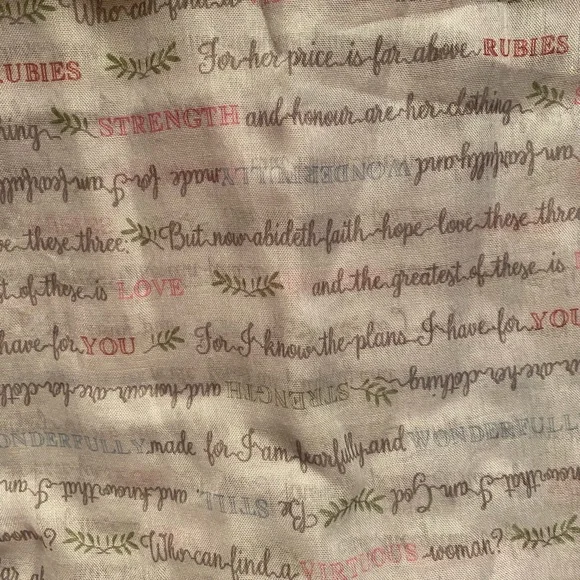 Who can find a
RUBIES For her price is far above RUBIES
STRENGTH and honour are her clothing
am fearfully and WONDERFULLY made for I am fearfully
these three. But now abideth faith hope love these three
of these is LOVE and the greatest of these is
have for YOU For I know the plans I have for YOU
are her clothing STRENGTH and honour are her
WONDERFULLY made for I am fearfully and WONDERFULLY
know that I am God Be STILL, and know that I am
woman? Who can find a VIRTUOUS woman?